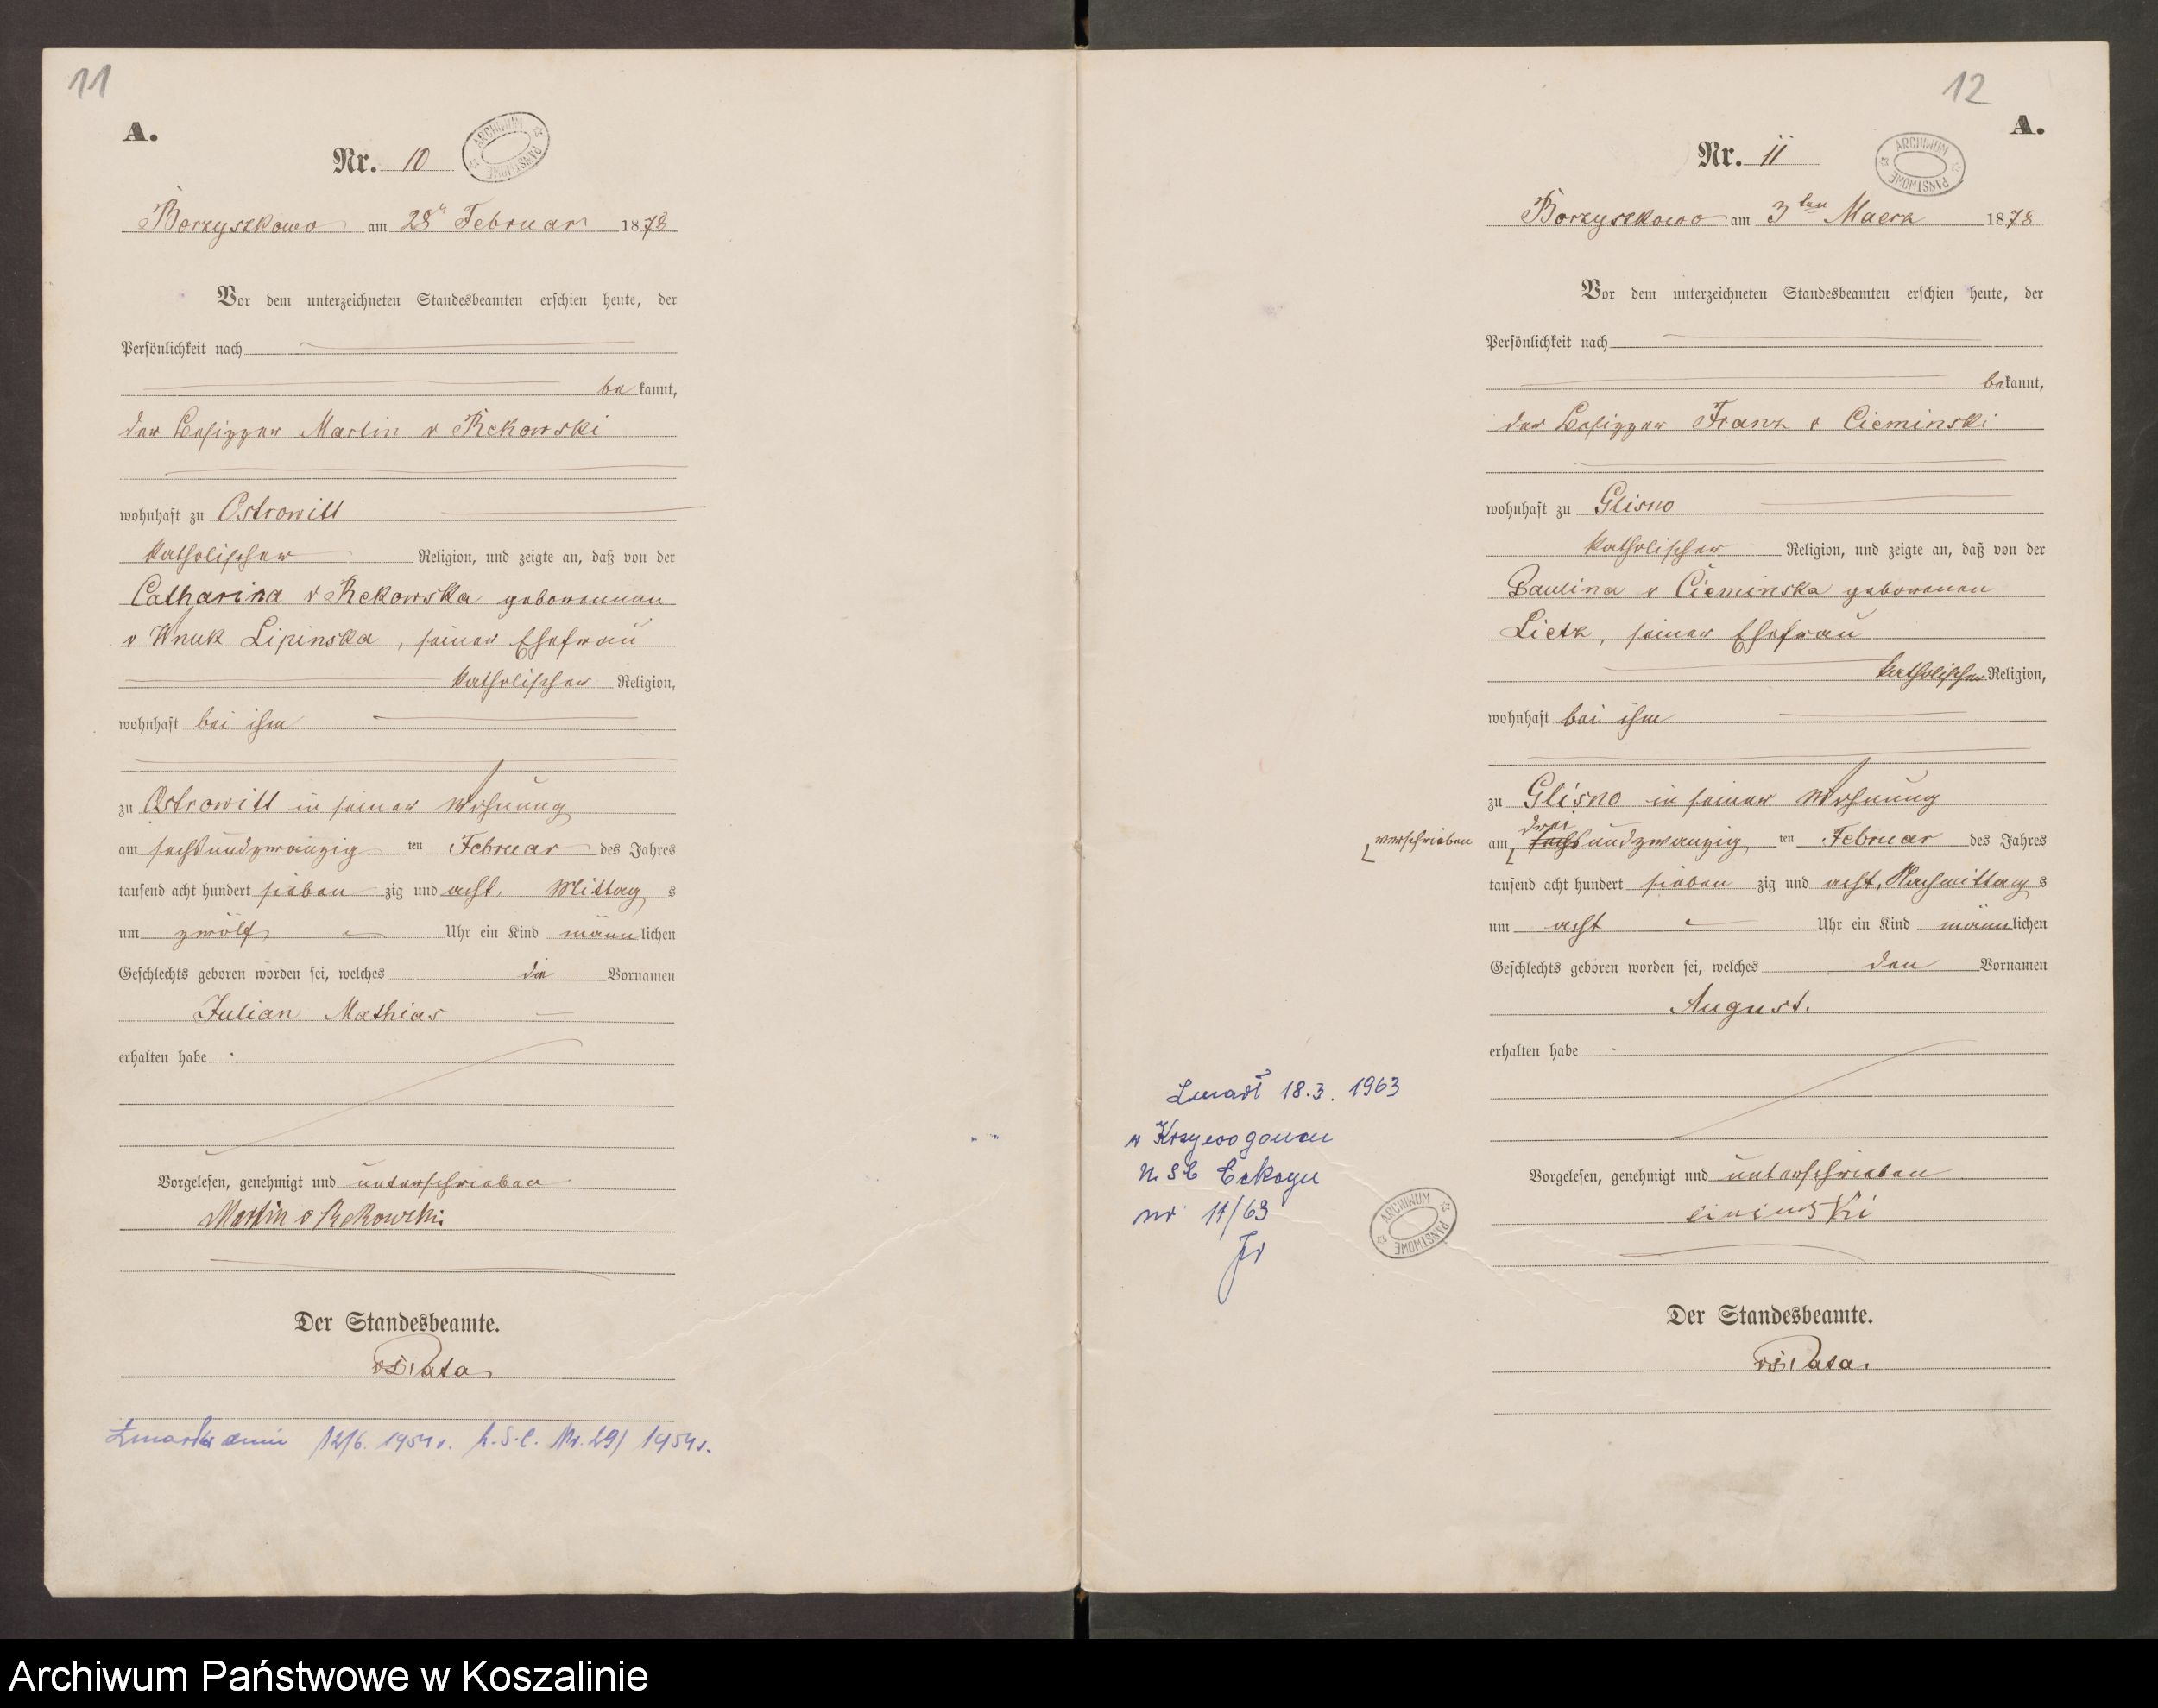 11
A.
Nr. 10
ARCHIWUM PAŃSTWOWE
Borzyszkowo am 28n Februar 1878
Vor dem unterzeichneten Standesbeamten erschien heute, der
Persönlichkeit nach
bekannt,
der Besizzer Martin v Rekowski
wohnhaft zu Ostrowitt
katholischer Religion, und zeigte an, daß von der
Catharina v Rekowska geborennen
v Wnuk Lipinska, seiner Ehefrau
katholischer Religion,
wohnhaft bei ihm
zu Ostrowitt in seiner Wohnung
am sechsundzwanzig ten Februar des Jahres
tausend acht hundert siebenzig und acht, Mittags
um zwölf Uhr ein Kind männlichen
Geschlechts geboren worden sei, welches die Vornamen
Julian Mathias
erhalten habe.
Vorgelesen, genehmigt und unterschrieben
Martin v Rekowski
Der Standesbeamte.
12/6. 1954r. Nr. 29/1954r.
12
A.
Nr. 11
ARCHIWUM PAŃSTWOWE
Borzyszkowo am 3ten Maerz 1878
Vor dem unterzeichneten Standesbeamten erschien heute, der
Persönlichkeit nach
bekannt,
der Besizzer Franz v Cieminski
wohnhaft zu Glisno
katholischer Religion, und zeigte an, daß von der
Paulina v Cieminska geborenen
Lietz, seiner Ehefrau
katholischer Religion,
wohnhaft bei ihm
zu Glisno in seiner Wohnung
drei
verschrieben am sechsundzwanzig ten Februar des Jahres
tausend acht hundert siebenzig und acht, Nachmittags
um acht Uhr ein Kind männlichen
Geschlechts geboren worden sei, welches den Vornamen
August.
erhalten habe.
Zmarł 18.3.1963
nr 11/63
ARCHIWUM PAŃSTWOWE
Vorgelesen, genehmigt und unterschrieben
Der Standesbeamte.
Archiwum Państwowe w Koszalinie